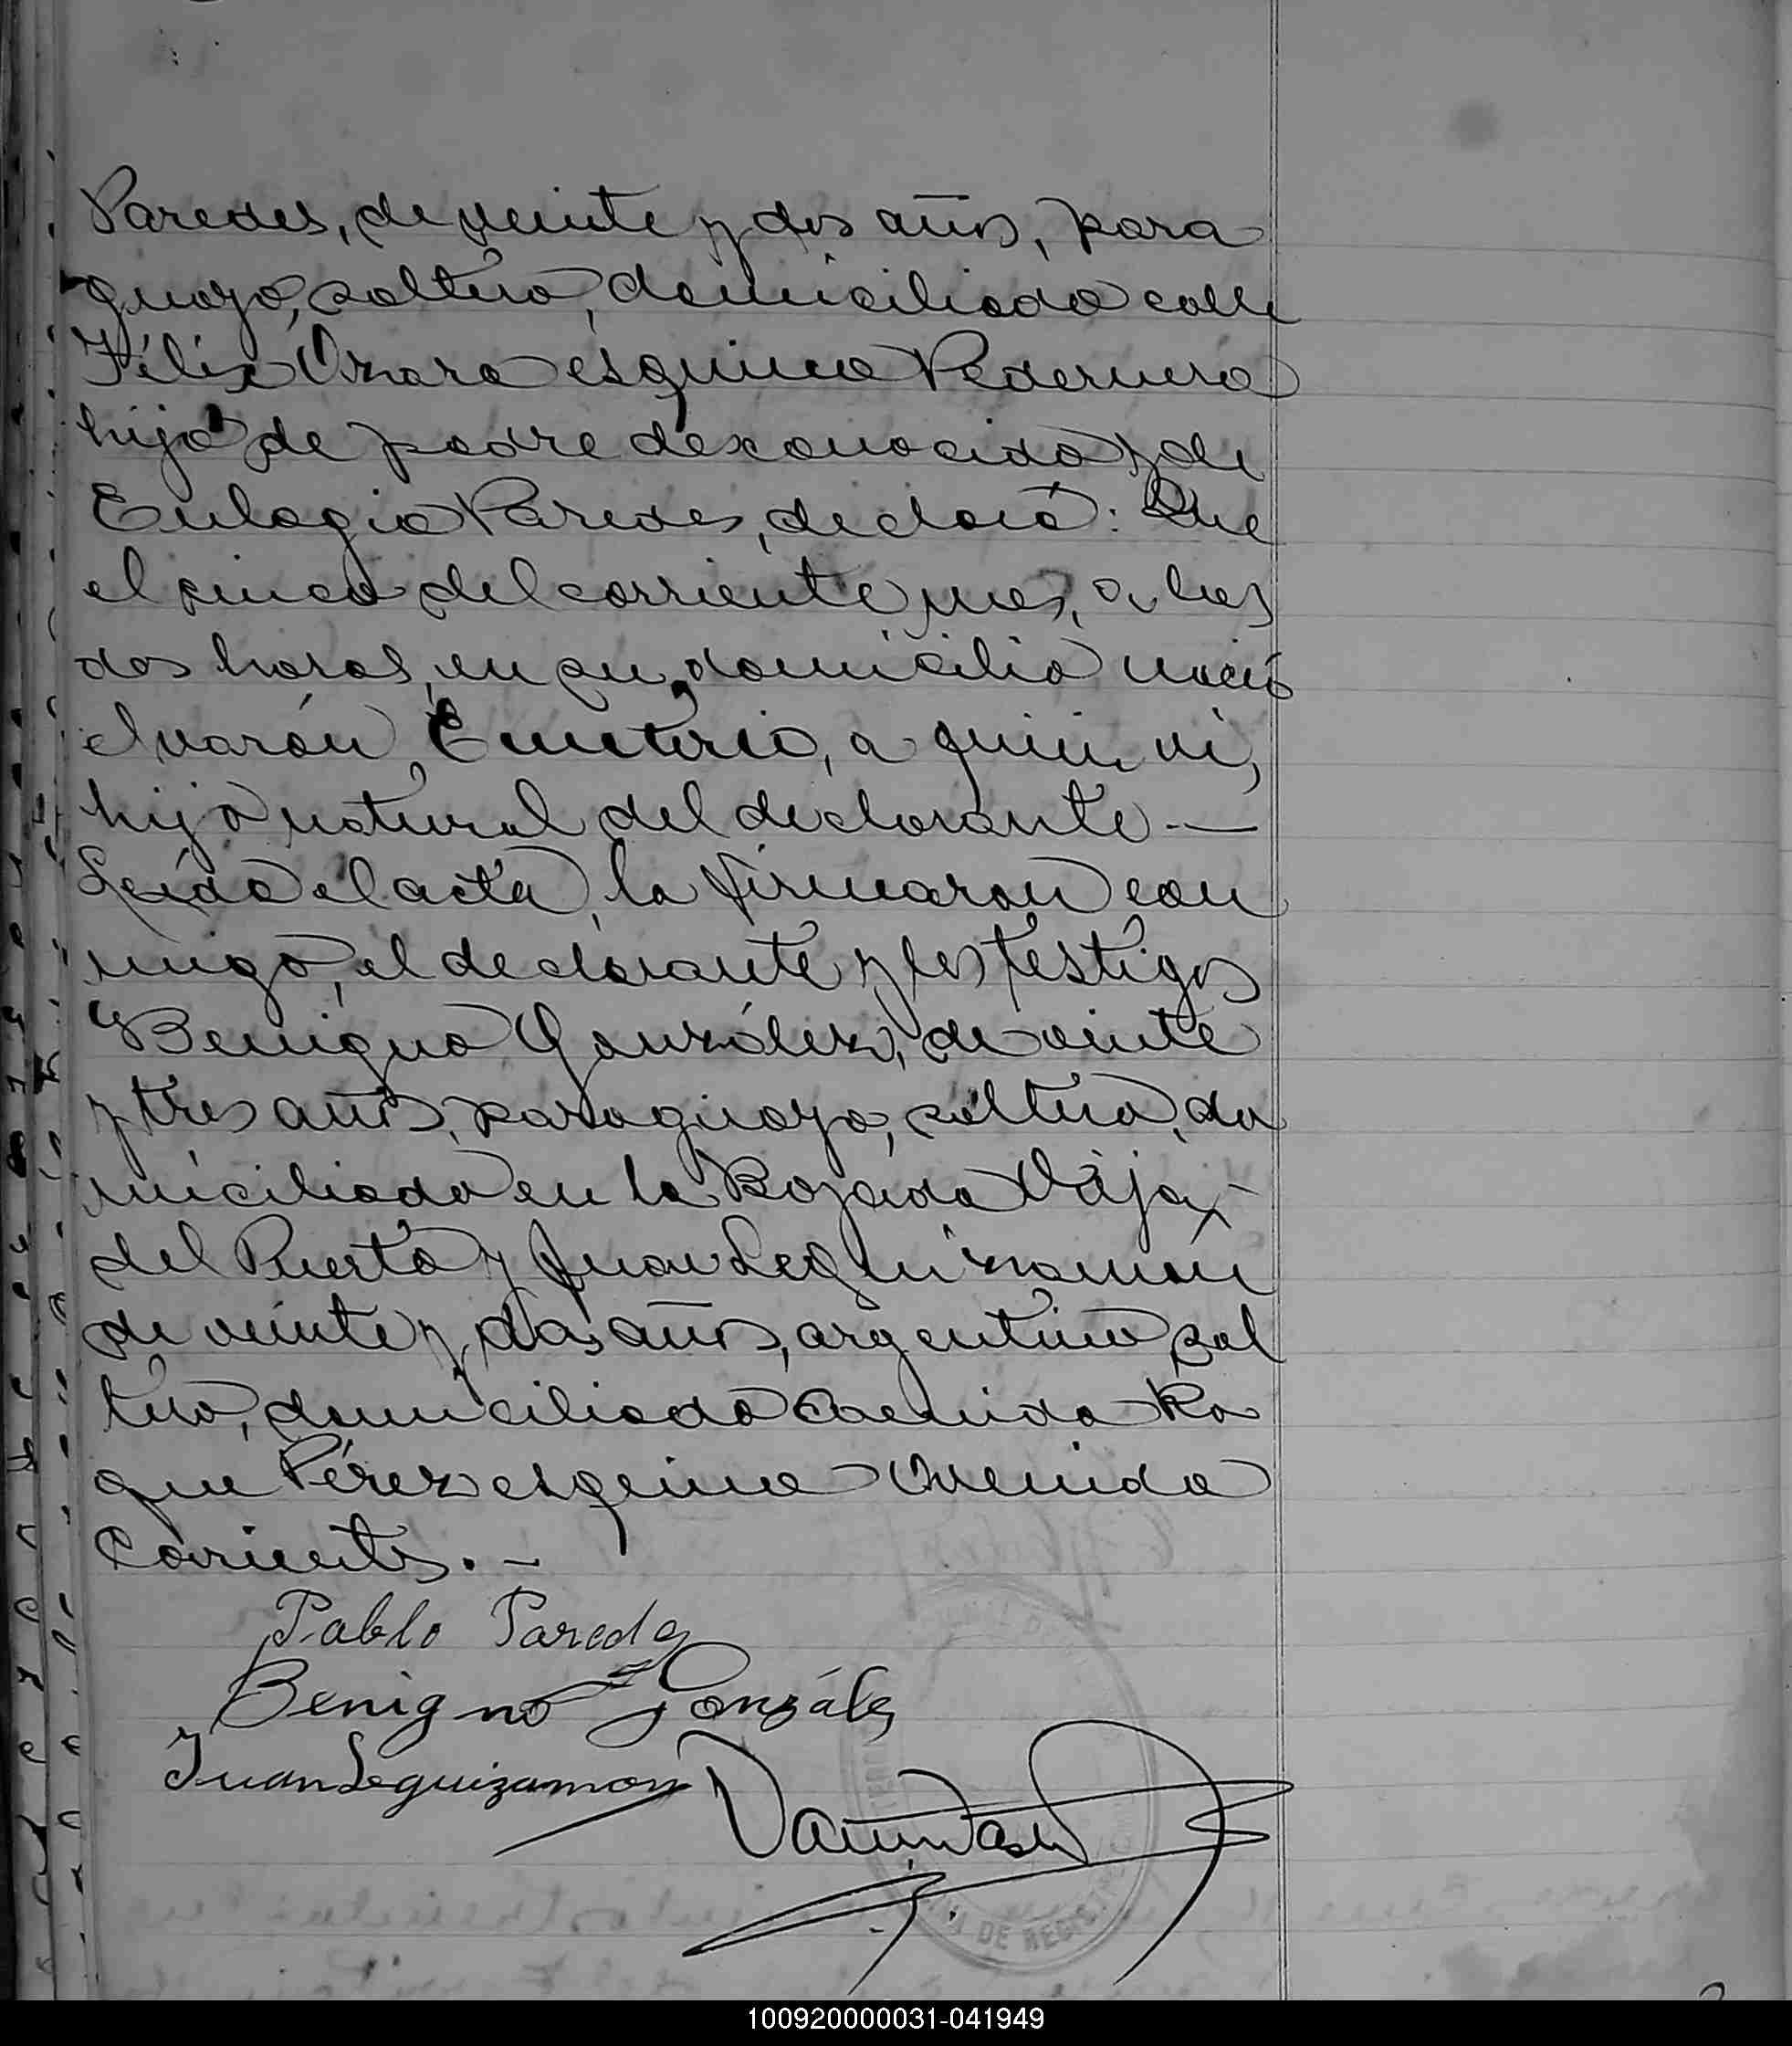 Paredes, de veinte y dos años, para
guayo, soltero, domiciliado calle
Félix Azara esquina Pedernera
hijo de padre desconocido y de
Eulogia Paredes, declaró: Que
el cinco del corriente mes, a las
dos horas, en su domicilio nació
el varón Emeterio, a quien vi,
hijo natural del declarante.—
Leída el acta, la firmaron con
migo, el declarante y los testigos
Benigno González, de veinte
y tres años, paraguayo, soltero, do
miciliado en la Bajada Vieja
del Puerto y Juan Leguizamón
de veinte y dos años, argentino, sol
tero, domiciliado Avenida Ro
que Pérez esquina Avenida
Corrientes.—
Pablo Paredes
Benigno González
Juan Leguizamon
DE REGIST
100920000031-041949